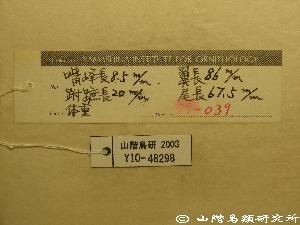 YAMASHINA INSTITUTE FOR ORNITHOLOGY
嘴峰長 8.5 m/m 翼長 86 m/m
跗蹠長 20 m/m 尾長 67.5 m/m
体重
-039
山階鳥研 2003
Y10-48298
© 山階鳥類研究所